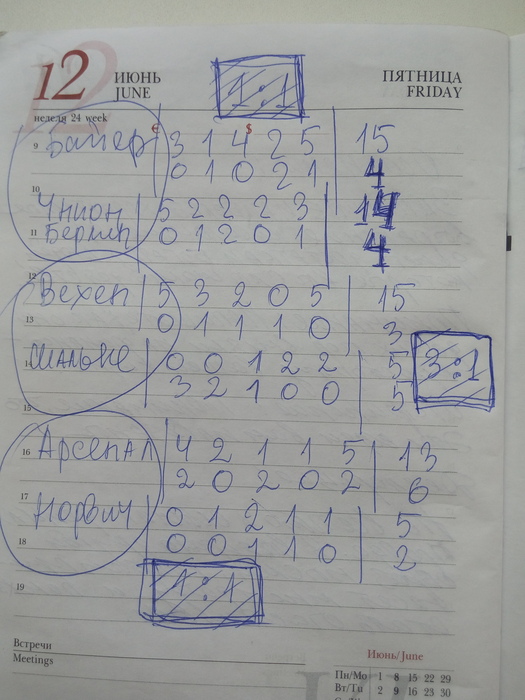 12
ИЮНЬ
JUNE
1:1
ПЯТНИЦА
FRIDAY
неделя 24 week
€ $
9 Байер 3 1 4 2 5 15
0 1 0 2 1 4
10
Унион 5 2 2 2 3 14
11 Берлин 0 1 2 0 1 4
12
Вехен 5 3 2 0 5 15
13 0 1 1 1 0 3
3:1
14 Мальке 0 0 1 2 2 5
3 2 1 0 0 5
15
16 Арсенал 4 2 1 1 5 13
2 0 2 0 2 6
17
Норвич 0 1 2 1 1 5
18 0 0 1 1 0 2
1:1
19
Встречи
Meetings
Июнь/June
Пн/Mo 1 8 15 22 29
Вт/Tu 2 9 16 23 30